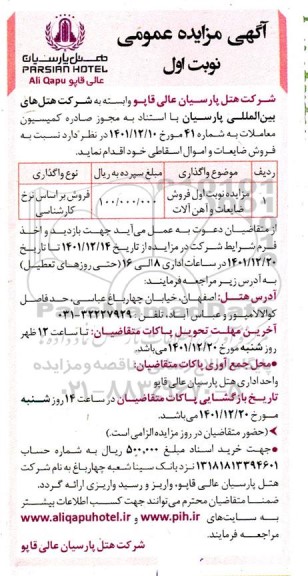 آگهی مزایده عمومی
نوبت اول
هتل پارسیان
PARSIAN HOTEL
عالی قاپو Ali Qapu
شرکت هتل پارسیان عالی قاپو وابسته به شرکت هتل‌های
بین‌المللی پارسیان با استناد به مجوز صادره کمیسیون
معاملات به شماره ۴۱ مورخ ۱۴۰۱/۱۲/۱۰ در نظر دارد نسبت به
فروش ضایعات و اموال اسقاطی خود اقدام نماید.
ردیف موضوع واگذاری مبلغ سپرده به ریال نوع واگذاری
۱ مزایده نوبت اول فروش ضایعات و آهن آلات ۱۰۰/۰۰۰/۰۰۰ فروش بر اساس نرخ کارشناسی
از متقاضیان دعوت به عمل می‌آید جهت بازدید و اخذ
فرم شرایط شرکت در مزایده از تاریخ ۱۴۰۱/۱۲/۱۴ تا تاریخ
۱۴۰۱/۱۲/۲۰ در ساعات اداری ۸ الی ۱۶ (حتی روزهای تعطیل)
به آدرس زیر مراجعه فرمایند:
آدرس هتل: اصفهان، خیابان چهارباغ عباسی، حد فاصل
کوالالامپور و عباس آباد، تلفن: ۳۲۲۲۷۹۲۹-۰۳۱
آخرین مهلت تحویل پاکات متقاضیان: تا ساعت ۱۲ ظهر
روز شنبه مورخ ۱۴۰۱/۱۲/۲۰ می‌باشد.
•محل جمع آوری پاکات متقاضیان:
واحد اداری هتل پارسیان عالی قاپو
تاریخ بازگشایی پاکات متقاضیان در ساعت ۱۴ روز شنبه
مورخ ۱۴۰۱/۱۲/۲۰ می‌باشد.
•(حضور متقاضیان در روز مزایده الزامی است.)
•جهت خرید اسناد مبلغ ۵۰۰,۰۰۰ ریال به شماره حساب
۱۳۱۸۱۸۱۳۳۹۴۶۰۱ نزد بانک سینا شعبه چهارباغ به نام شرکت
هتل پارسیان عالی قاپو، واریز و رسید واریزی ارائه گردد.
ضمنا متقاضیان محترم می‌توانند جهت کسب اطلاعات بیشتر
به سایت‌های www.pih.ir و www.aliqapuhotel.ir
مراجعه فرمایند.
شرکت هتل پارسیان عالی قاپو